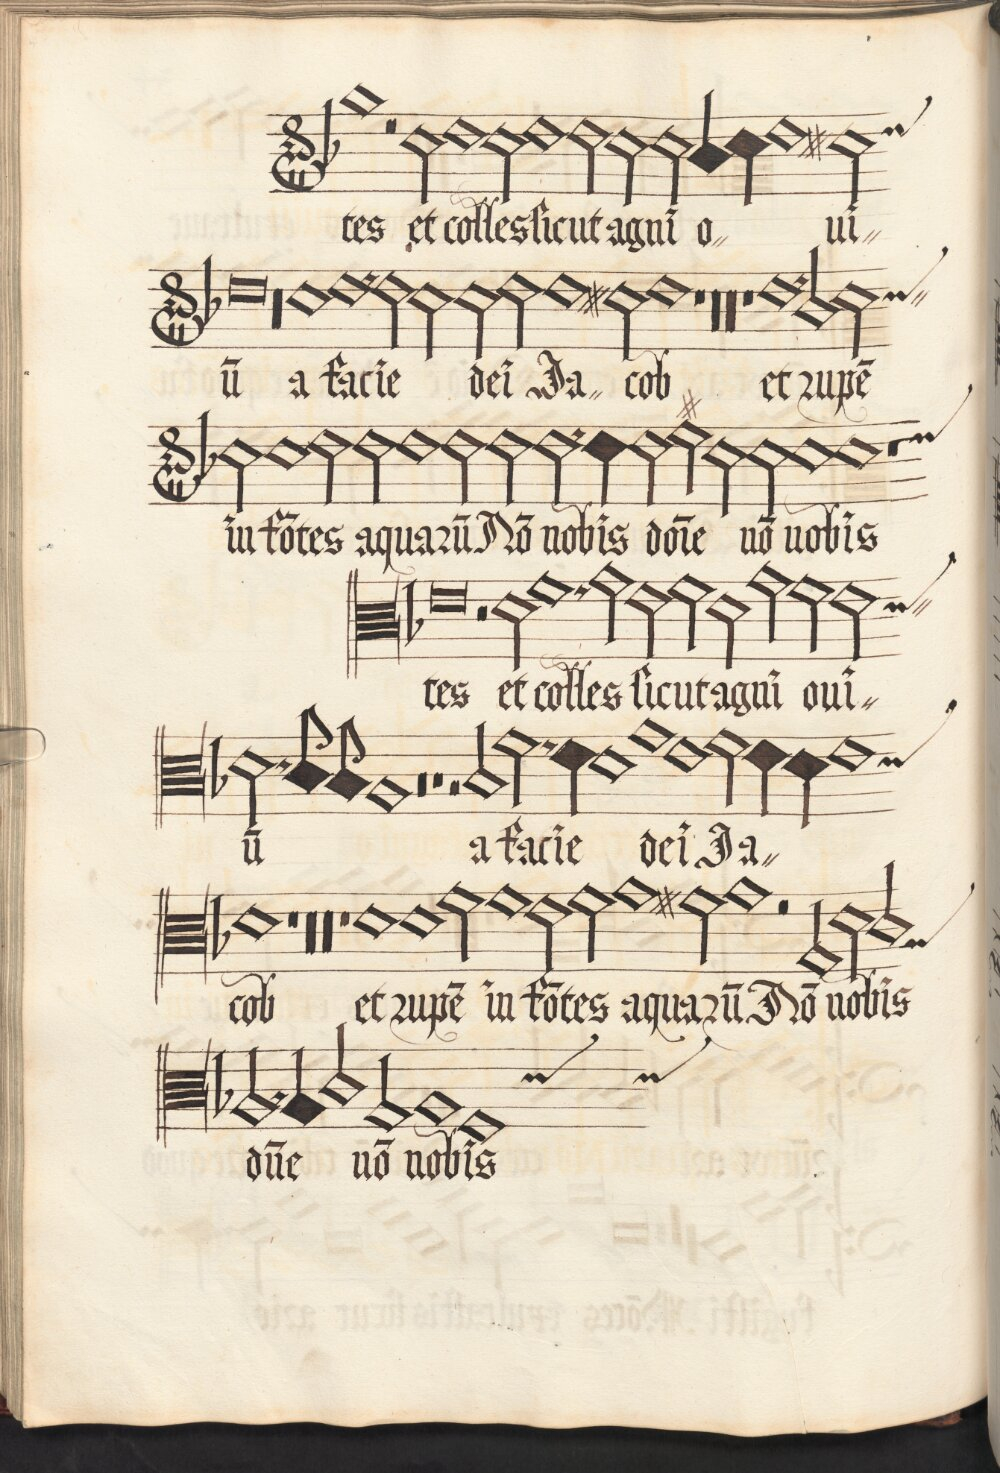 tes et colles sicut agni o„ ui„
ū a facie dei Ja„ cob et rupē
in fōtes aquarū Nō nobis doīe nō nobis
tes et colles sicut agni oui„
ū a facie dei Ja„
cob et rupē in fōtes aquarū Nō nobis
dn̄e nō nobis